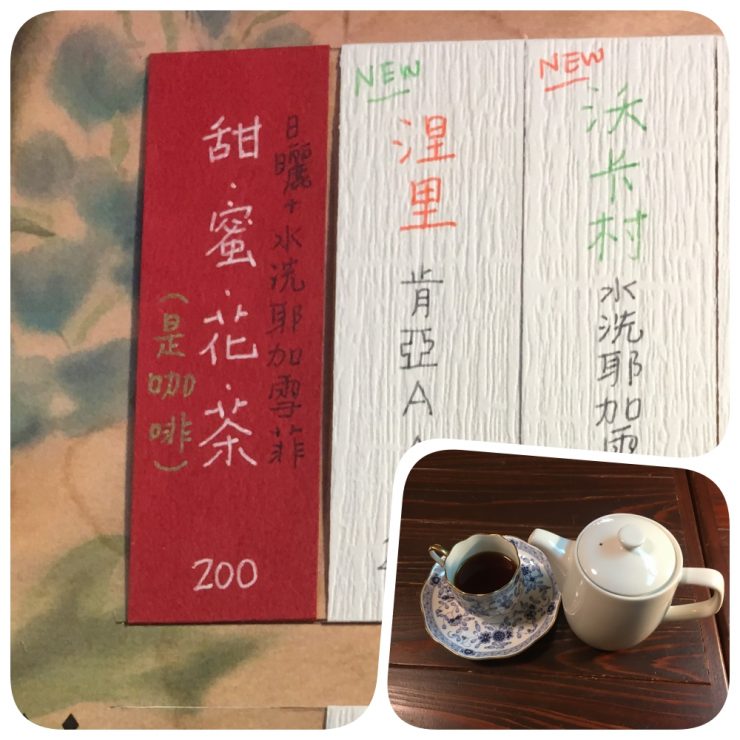 日曬+水洗耶加雪菲
甜·蜜·花·茶
(是咖啡)
200
NEW
涅里
肯亞A
NEW
沃卡村
水洗耶加雪